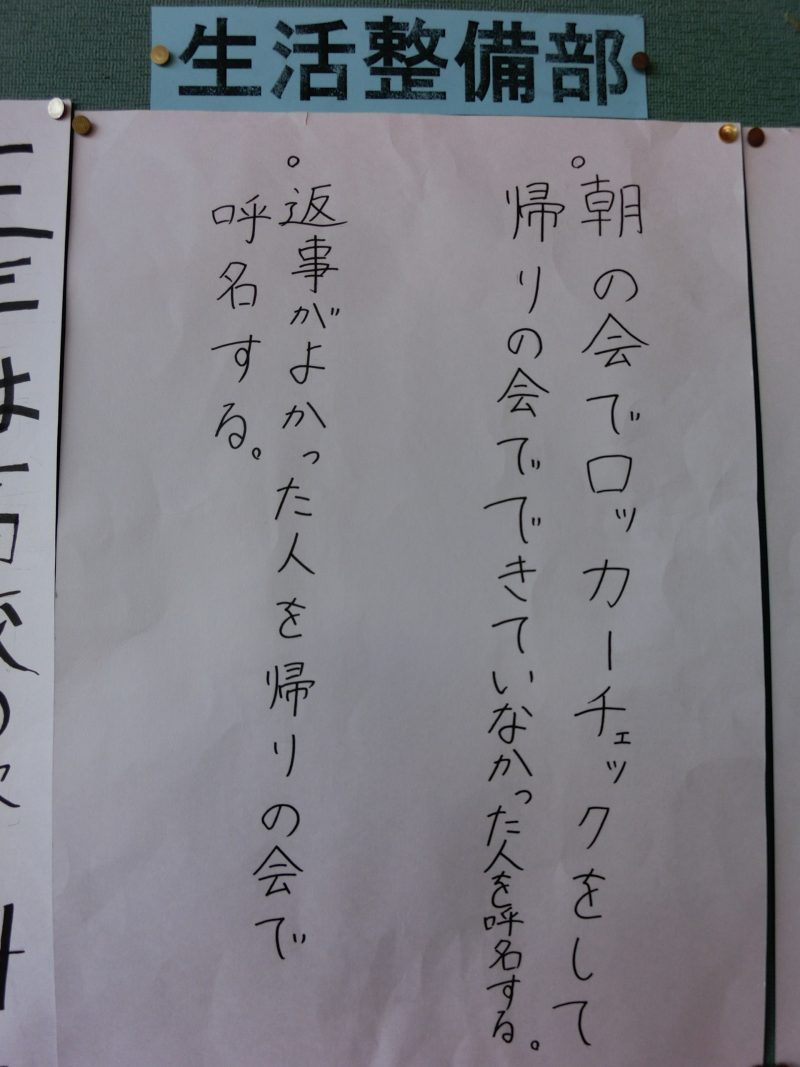 生活整備部
。朝の会でロッカーチェックをして
帰りの会でできていなかった人を呼名する。
。返事がよかった人を帰りの会で
呼名する。